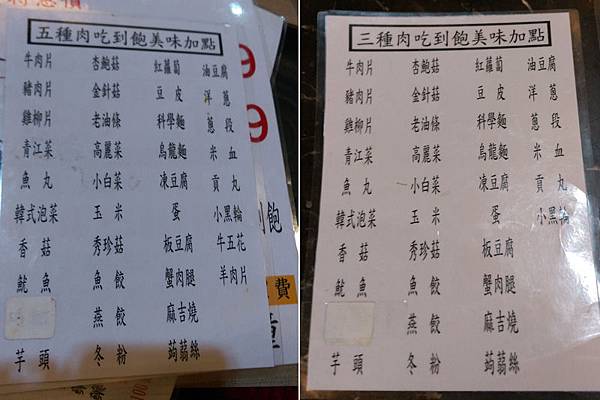 特惠價
五種肉吃到飽美味加點
牛肉片 杏鮑菇 紅蘿蔔 油豆腐
豬肉片 金針菇 豆皮 洋蔥
雞柳片 老油條 科學麵 蔥段
青江菜 高麗菜 烏龍麵 米血
魚丸 小白菜 凍豆腐 貢丸
韓式泡菜 玉米 蛋 小黑輪
香菇 秀珍菇 板豆腐 牛五花
魷魚 魚餃 蟹肉腿 羊肉片
燕餃 麻吉燒
芋頭 冬粉 蒟蒻絲
9
9
到飽
費
三種肉吃到飽美味加點
牛肉片 杏鮑菇 紅蘿蔔 油豆腐
豬肉片 金針菇 豆皮 洋蔥
雞柳片 老油條 科學麵 蔥段
青江菜 高麗菜 烏龍麵 米血
魚丸 小白菜 凍豆腐 貢丸
韓式泡菜 玉米 蛋 小黑輪
香菇 秀珍菇 板豆腐
魷魚 魚餃 蟹肉腿
燕餃 麻吉燒
芋頭 冬粉 蒟蒻絲